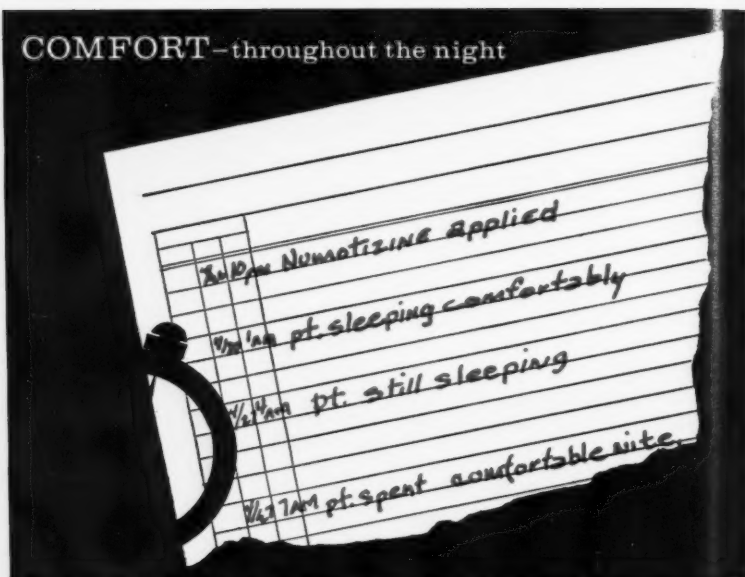 COMFORT–throughout the night
10 PM Numotizine applied
1 AM pt. sleeping comfortably
4 AM pt. still sleeping
7 AM pt. spent comfortable nite.